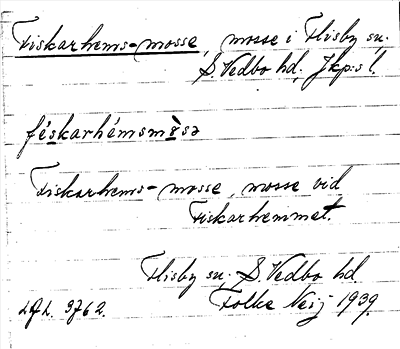 Fiskarhems-mosse, mosse i Flisby sn.
S. Vedbo hd. Jkp:s l.
féskarhémsmòsə
Fiskarhems-mosse, mosse vid
Fiskarhemmet.
Flisby sn, S. Vedbo hd.
Folke Neij 1939.